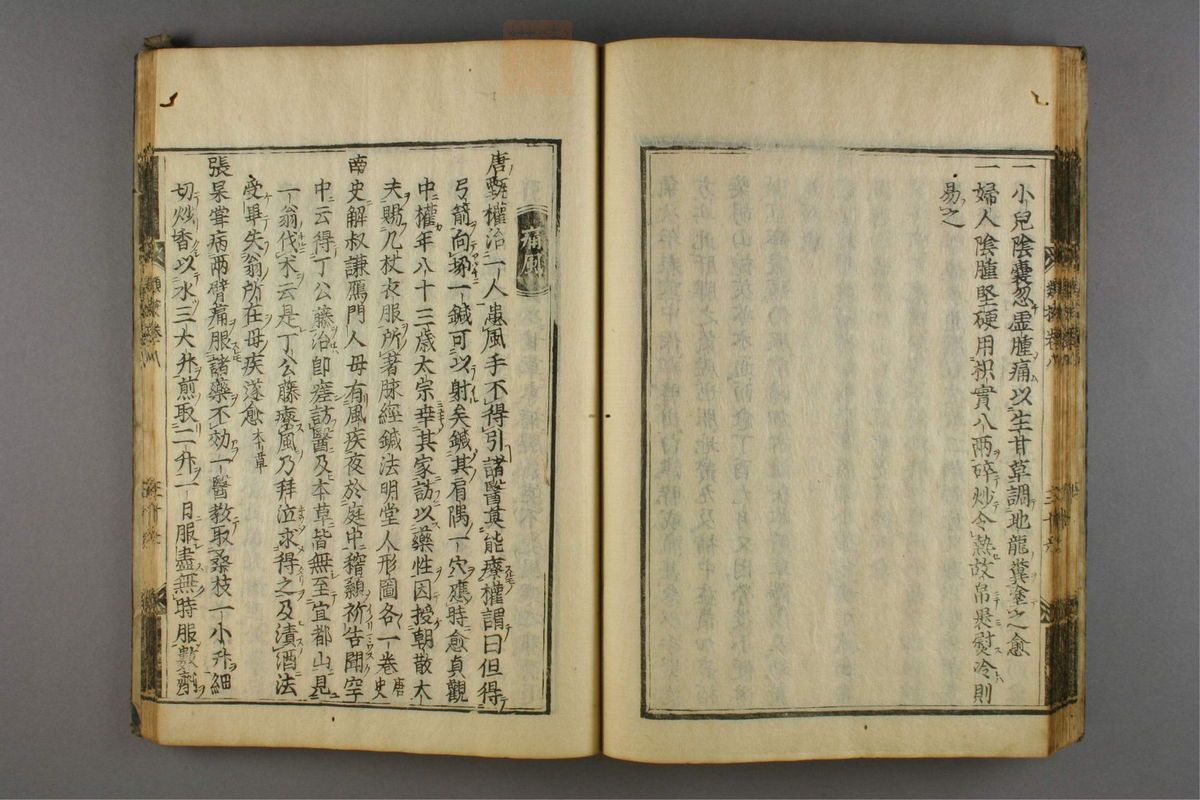 一 小兒陰嚢忽虚腫痛以生甘草調地龍糞塗之愈
一 婦人陰腫堅硬用枳實八兩碎炒令熱故帛裹熨冷則
易之
痛風
唐甄權治一人患風手不得引諸醫莫能療權謂曰但得
弓箭向堋一鍼可以射矣鍼其肩隅一穴應時愈貞觀
中權年八十三歳太宗幸其家訪以藥性因授朝散大
夫賜几杖衣服所著脉經鍼法明堂人形圖各一卷唐史
南史解叔謙鴈門人母有風疾夜於庭中稽顙祈告聞空
中云得丁公藤治即瘥訪醫及本草皆無至宜都山見
一翁伐木云是丁公藤療風乃拜泣求得之及漬酒法
受畢失翁所在母疾遂愈本草
張杲嘗病兩臂痛服諸藥不効一醫教取桑枝一小升細
切炒香以水三大升煎取二升一日服盡無時服數劑